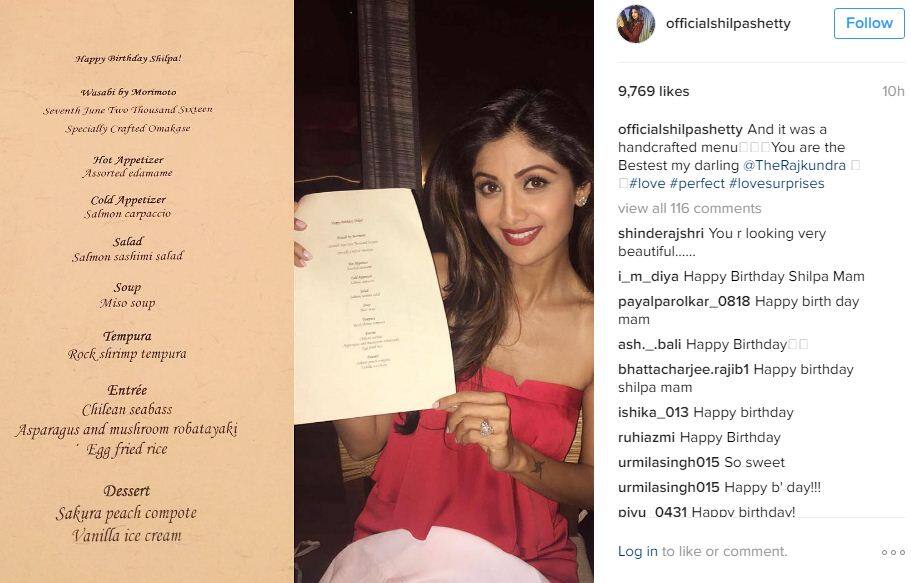 Happy Birthday Shilpa!
Wasabi by Morimoto
Seventh June Two Thousand Sixteen
Specially Crafted Omakase
Hot Appetizer
Assorted edamame
Cold Appetizer
Salmon carpaccio
Salad
Salmon sashimi salad
Soup
Miso soup
Tempura
Rock shrimp tempura
Entrée
Chilean seabass
Asparagus and mushroom robatayaki
Egg fried rice
Dessert
Sakura peach compote
Vanilla ice cream
officialshilpashetty
Follow
9,769 likes 10h
officialshilpashetty And it was a
handcrafted menu You are the
Bestest my darling @TheRajkundra
#love #perfect #lovesurprises
view all 116 comments
shinderajshri You r looking very
beautiful......
i_m_diya Happy Birthday Shilpa Mam
payalparolkar_0818 Happy birth day
mam
ash._.bali Happy Birthday
bhattacharjee.rajib1 Happy birthday
shilpa mam
ishika_013 Happy birthday
ruhiazmi Happy Birthday
urmilasingh015 So sweet
urmilasingh015 Happy b' day!!!
piyu_0431 Happy birthday!
Log in to like or comment.